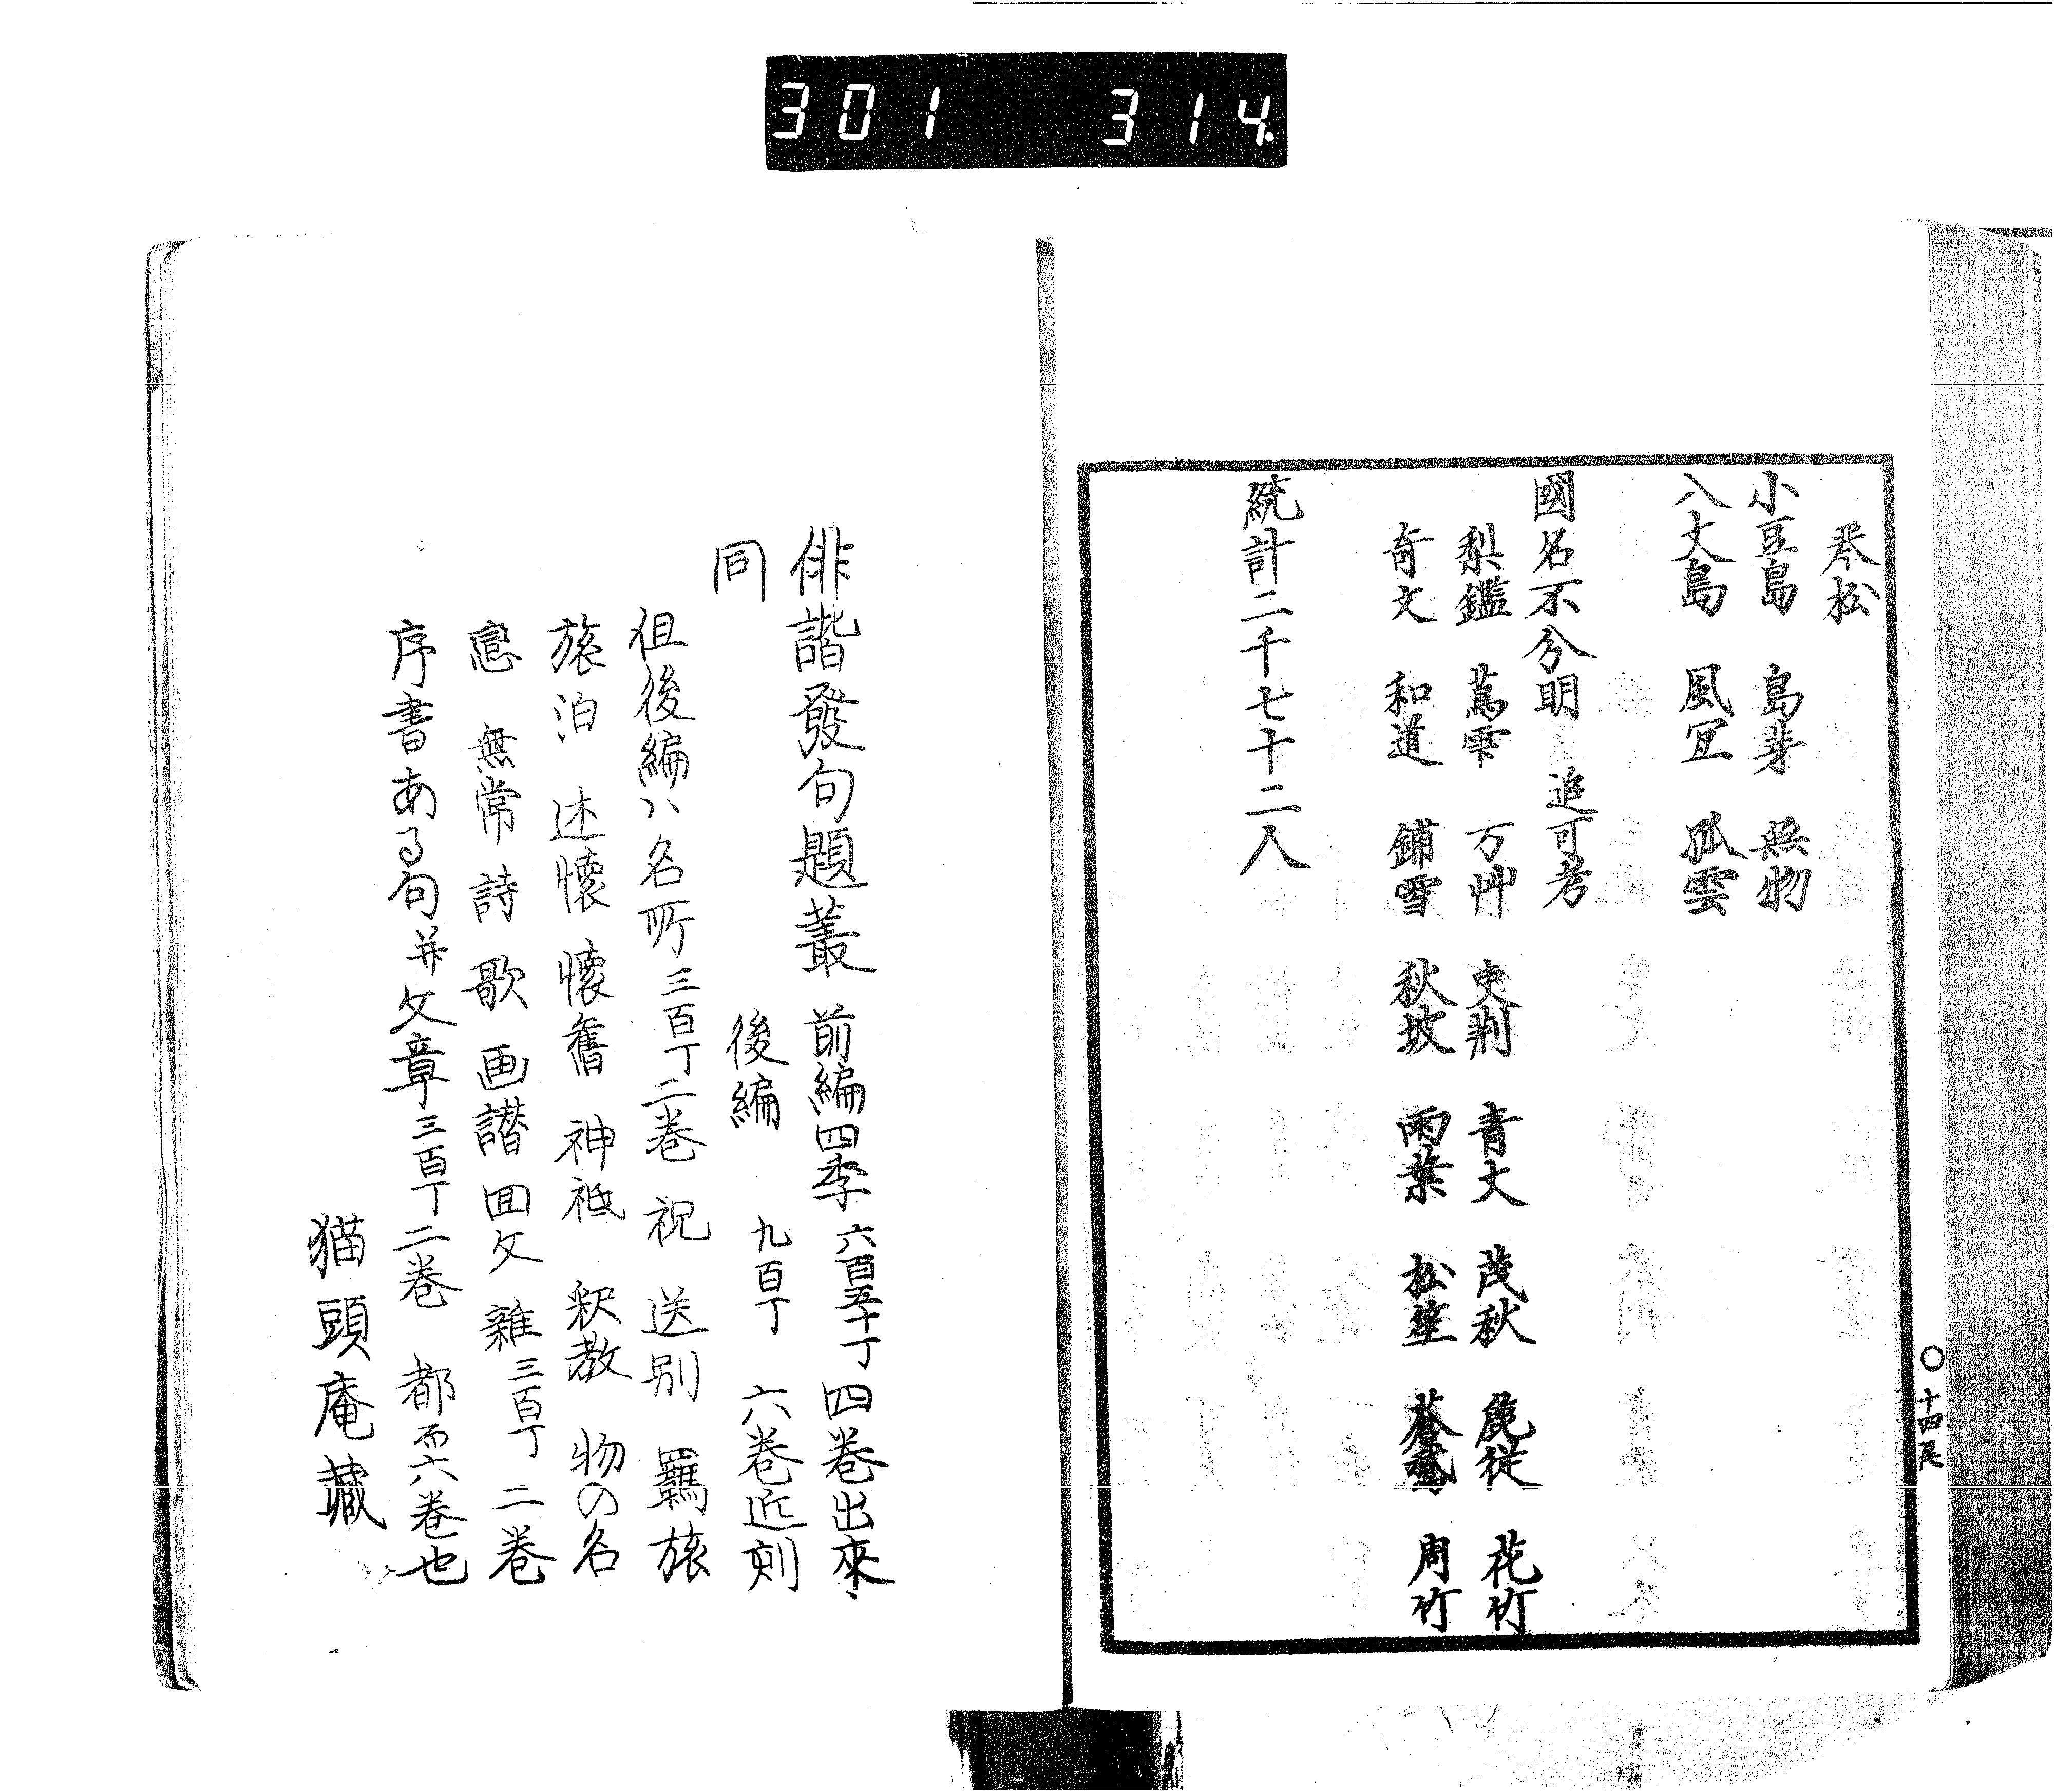 301 314
松
小豆島 島芽 無物
八丈島 風宜 孤雲
國名不分明 追可考
梨鑑 蔦雫 万艸 吏荆 青大 茂秋 鹿従 花竹
奇文 和道 鋪雪 秋坡 雨葉 松笙 周竹
統計二千七十二人
○十四尾
俳諧發句題叢 前編四季 六百五十丁 四巻出來
同 後編 九百丁 六巻近刻
但後編ハ名所三百丁二巻 祝 送別 羈旅
旅泊 述懐 懐舊 神祇 釈教 物の名
戀 無常 詩歌 画讃 回文 雜三百丁 二巻
序書ある句并文章三百丁二巻 都而六巻也
猫頭庵藏